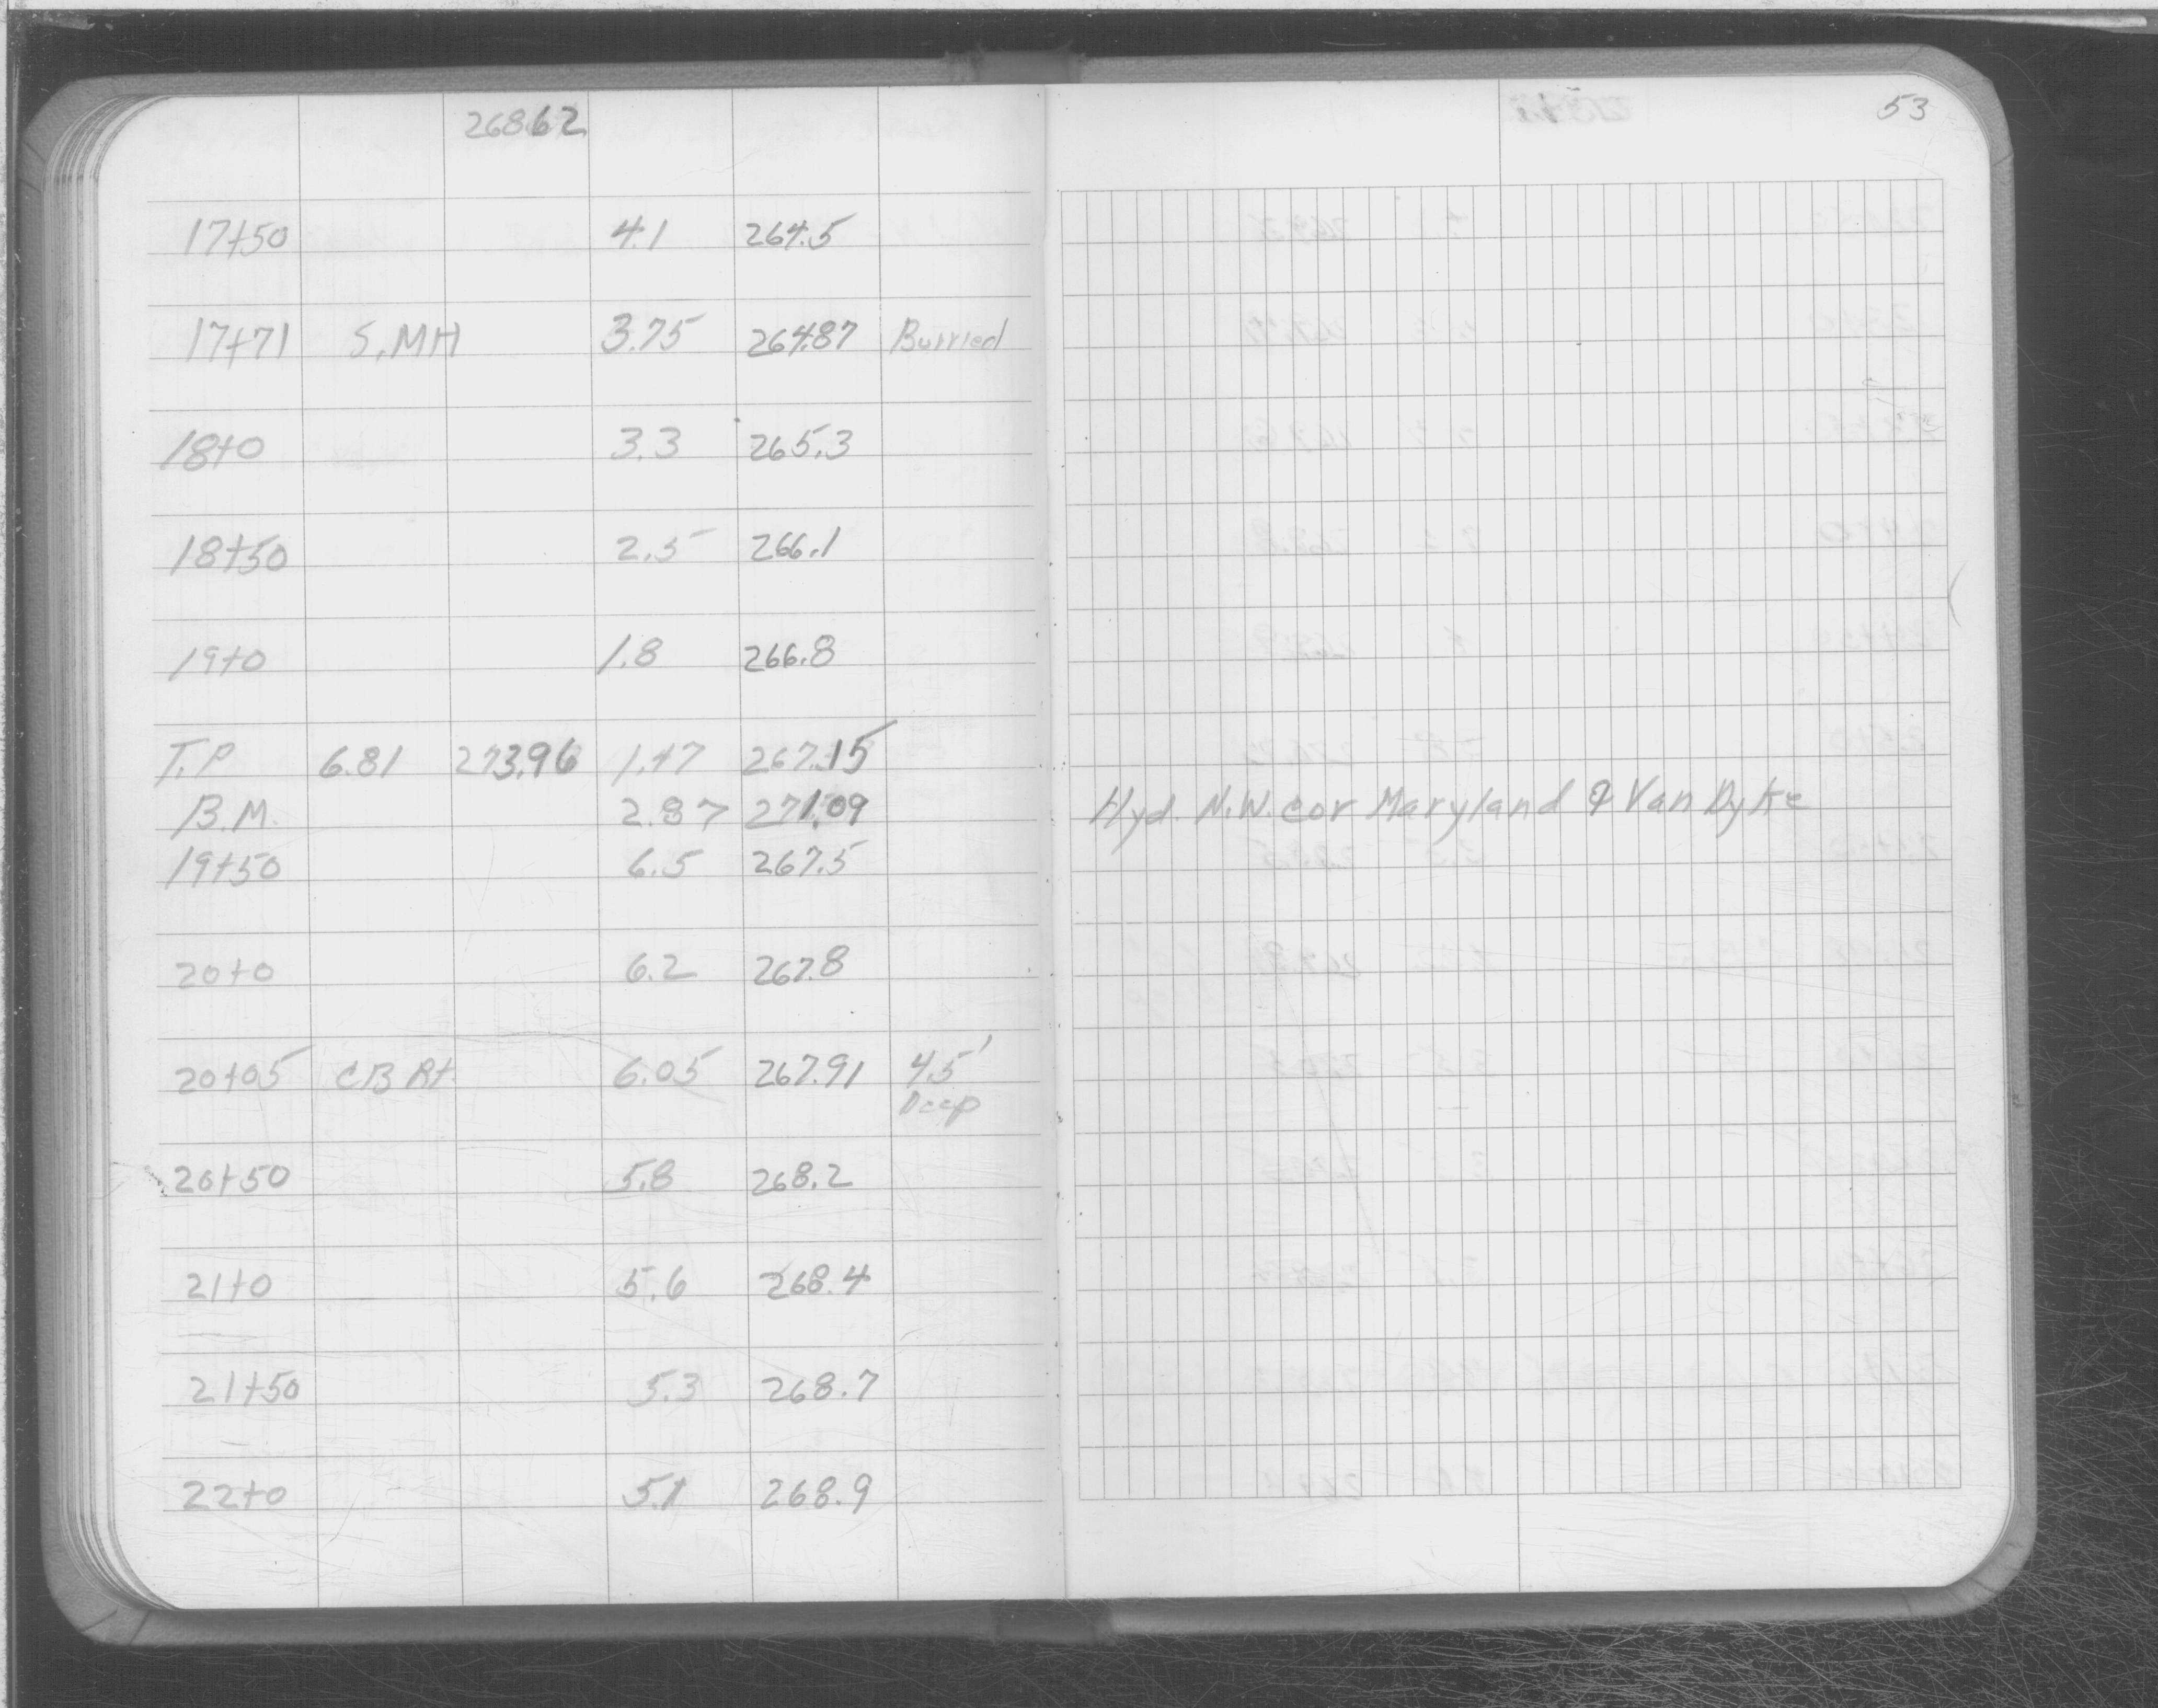 268.62
53
17+50 4.1 264.5
17+71 S.MH 3.75 264.87 Burried
18+0 3.3 265.3
18+50 2.5 266.1
19+0 1.8 266.8
T.P 6.81 273.96 1.47 267.15
B.M. 2.87 271.09 Hyd. N.W. cor Maryland & Van Dyke
19+50 6.5 267.5
20+0 6.2 267.8
20+05 CB Rt. 6.05 267.91 4.5'
Deep
20+50 5.8 268.2
21+0 5.6 268.4
21+50 5.3 268.7
22+0 5.1 268.9